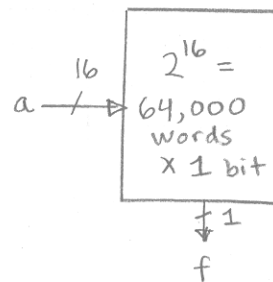 16
2^16 =
a
64,000
words
x 1 bit
1
f